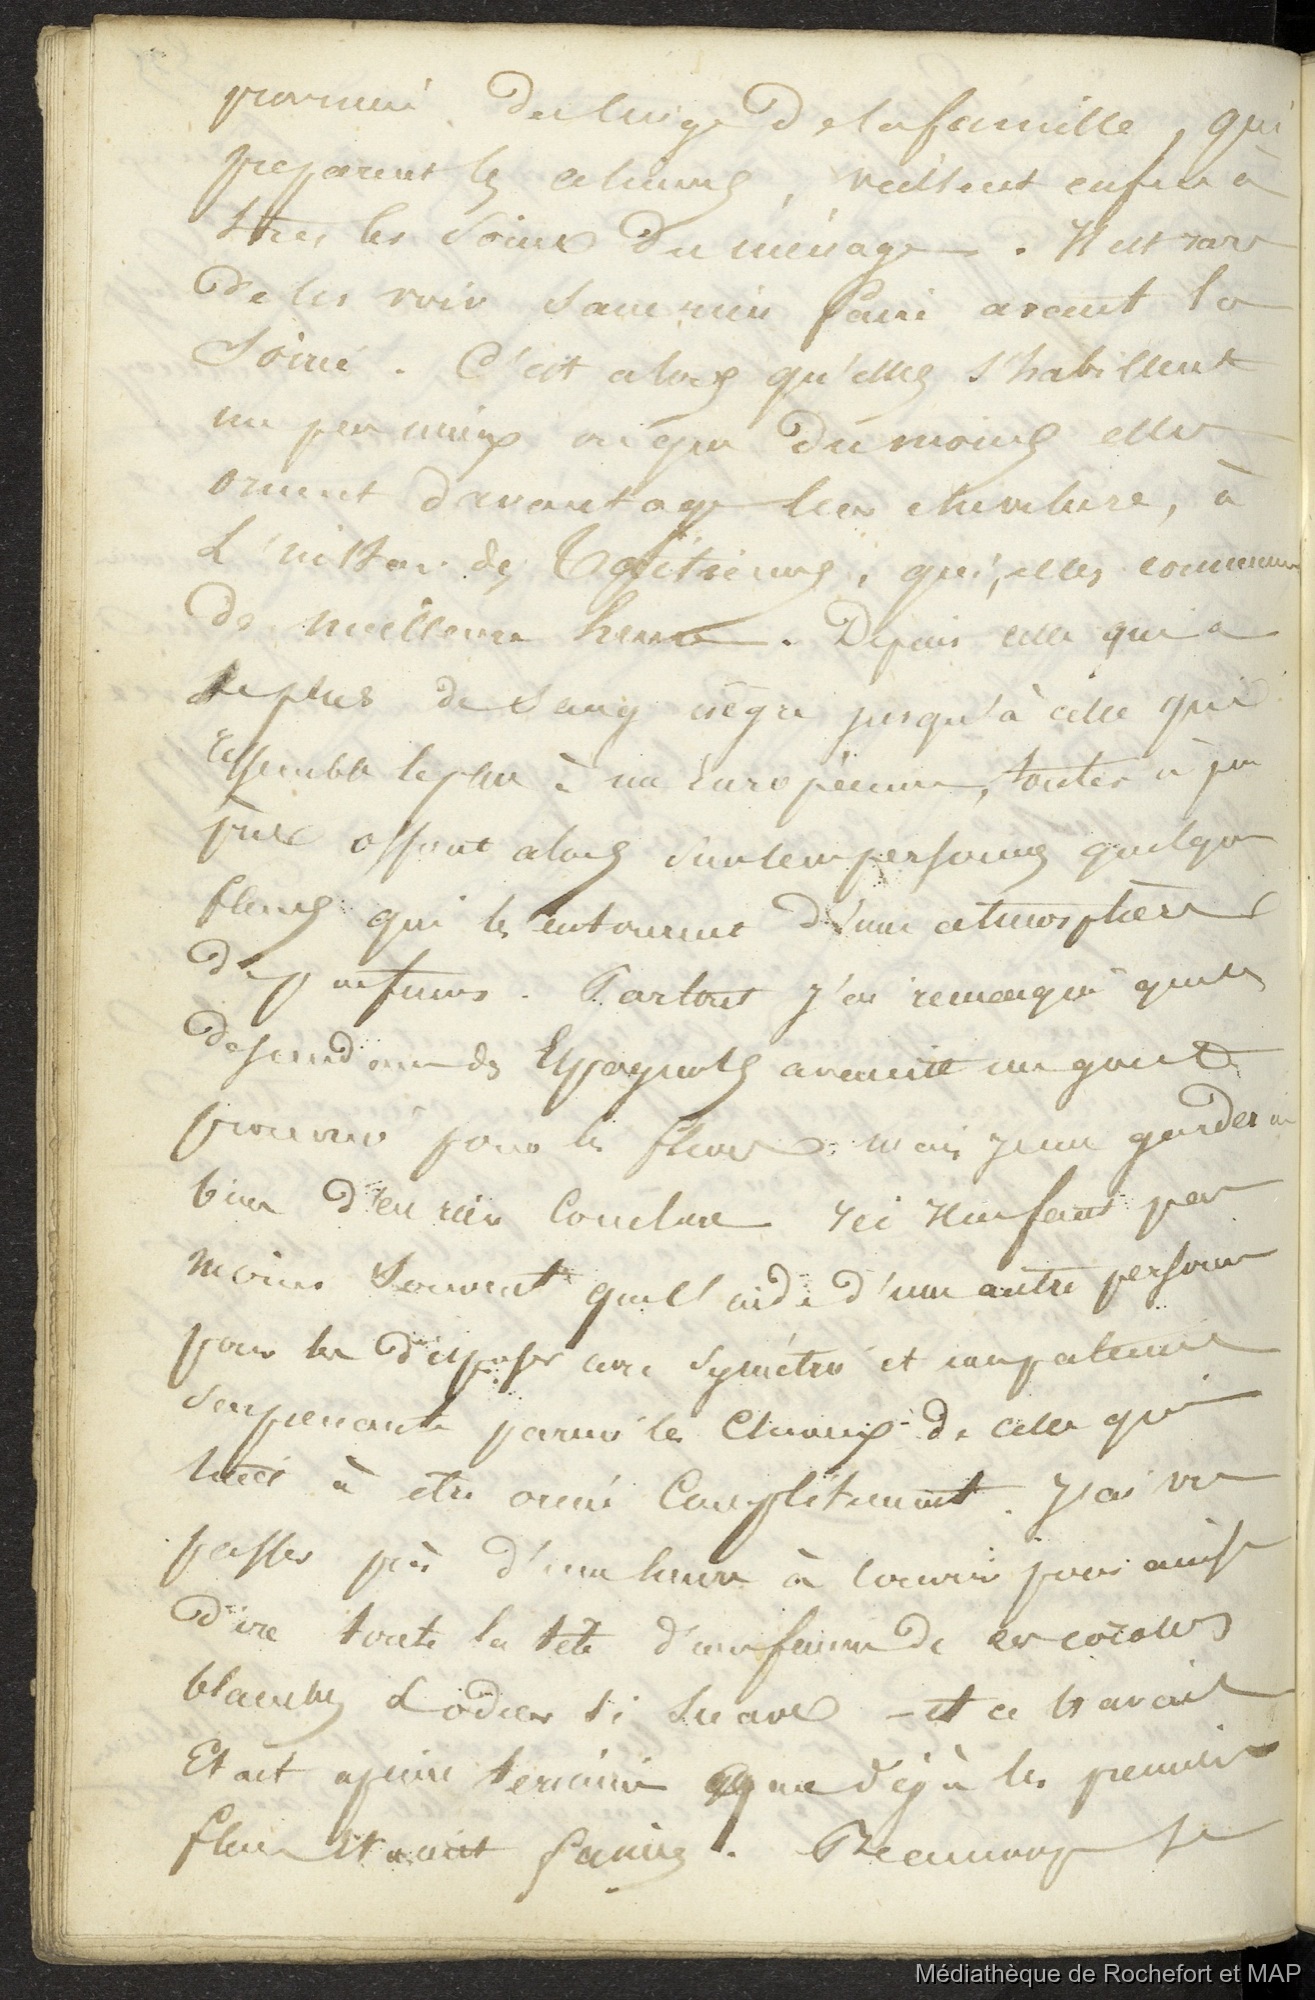 du linge de la famille, qui
preparent les aliments, veillent enfin à
tous les soins du ménage. Il est rare
de les voir sans rien faire avant la
soirée. C'est alors qu'elles s'habillent
un peu mieux ou que du moins elles
ornent davantage leur chevelure, à
L'instar des Taïtiennes, qui, elles commencent
de meilleure heure. Depuis celle qui a
le plus de sang nègre jusqu'à celle qui
ressemble le plus à une Européenne, toutes à peu
près offrent alors sur leur personne quelques
fleurs qui les entourent d'une atmosphère
de parfums. Partout j'ai remarqué que les
descendans des Espagnols avaient un gout
prononcé pour les fleurs mais je me garderai
bien d'en rien conclure ici il ne faut pas
moins souvent que l'aide d'une autre personne
pour les disposer avec symétrie et une patience
surprenante parmi les cheveux de celle qui
tient à être ornée complètement. J'ai vu
passer près d'une heure à couvrir pour ainsi
dire toute la tête d'une femme de ces corolles
blanches d'odeur si suave - et ce travail
Etait à peine terminé que déjà les premières
fleurs étaient fanées. Beaucoup se
Médiathèque de Rochefort et MAP